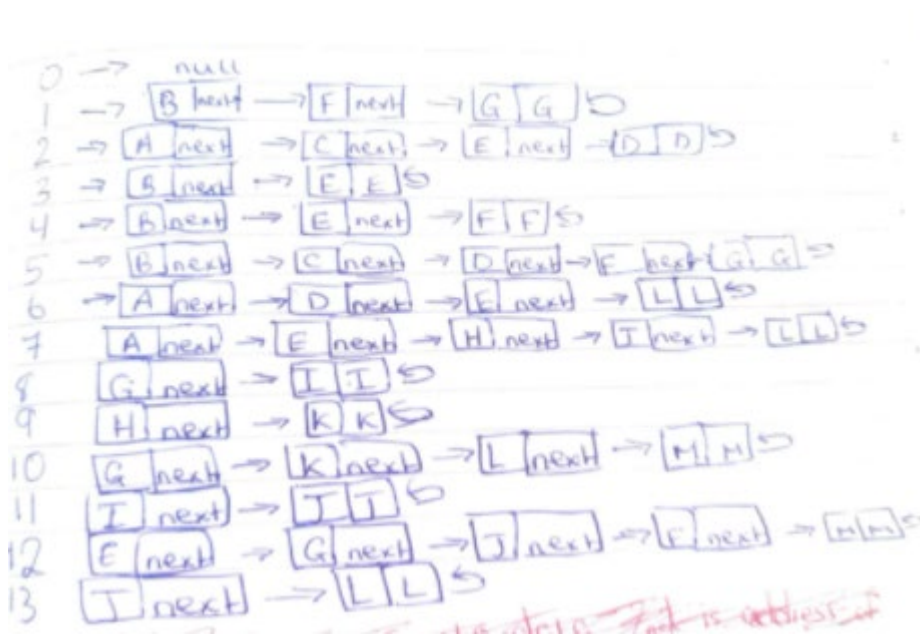 0 → null
1 → B next → F next → G G
2 → A next → C next → E next → D D
3 → B next → E E
4 → B next → E next → F F
5 → B next → C next → D next → F next G G
6 → A next → D next → E next → L L
7 A next → E next → H next → I next → L L
8 G next → I I
9 H next → K K
10 G next → K next → L next → M M
11 I next → J J
12 E next → G next → J next → F next → M M
13 J next → L L
is address of